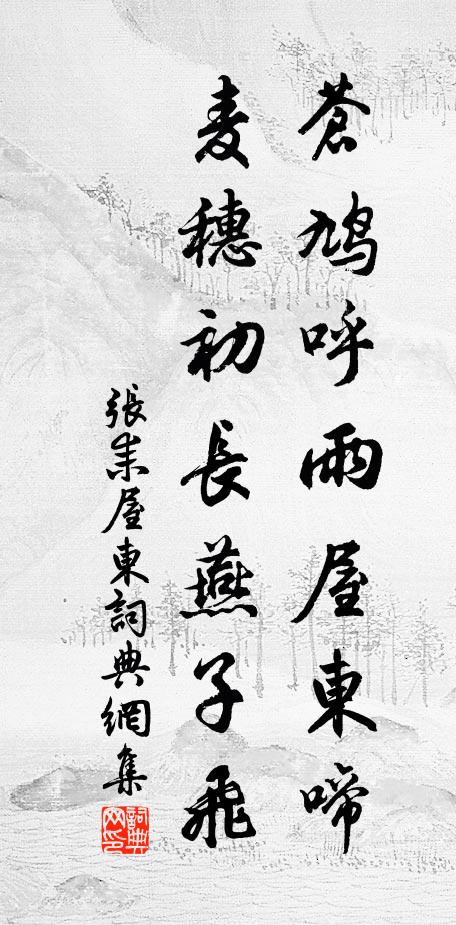 蒼鳩呼雨屋東啼
麦穗初長燕子飛
張耒屋東詞典網集
詞典網印